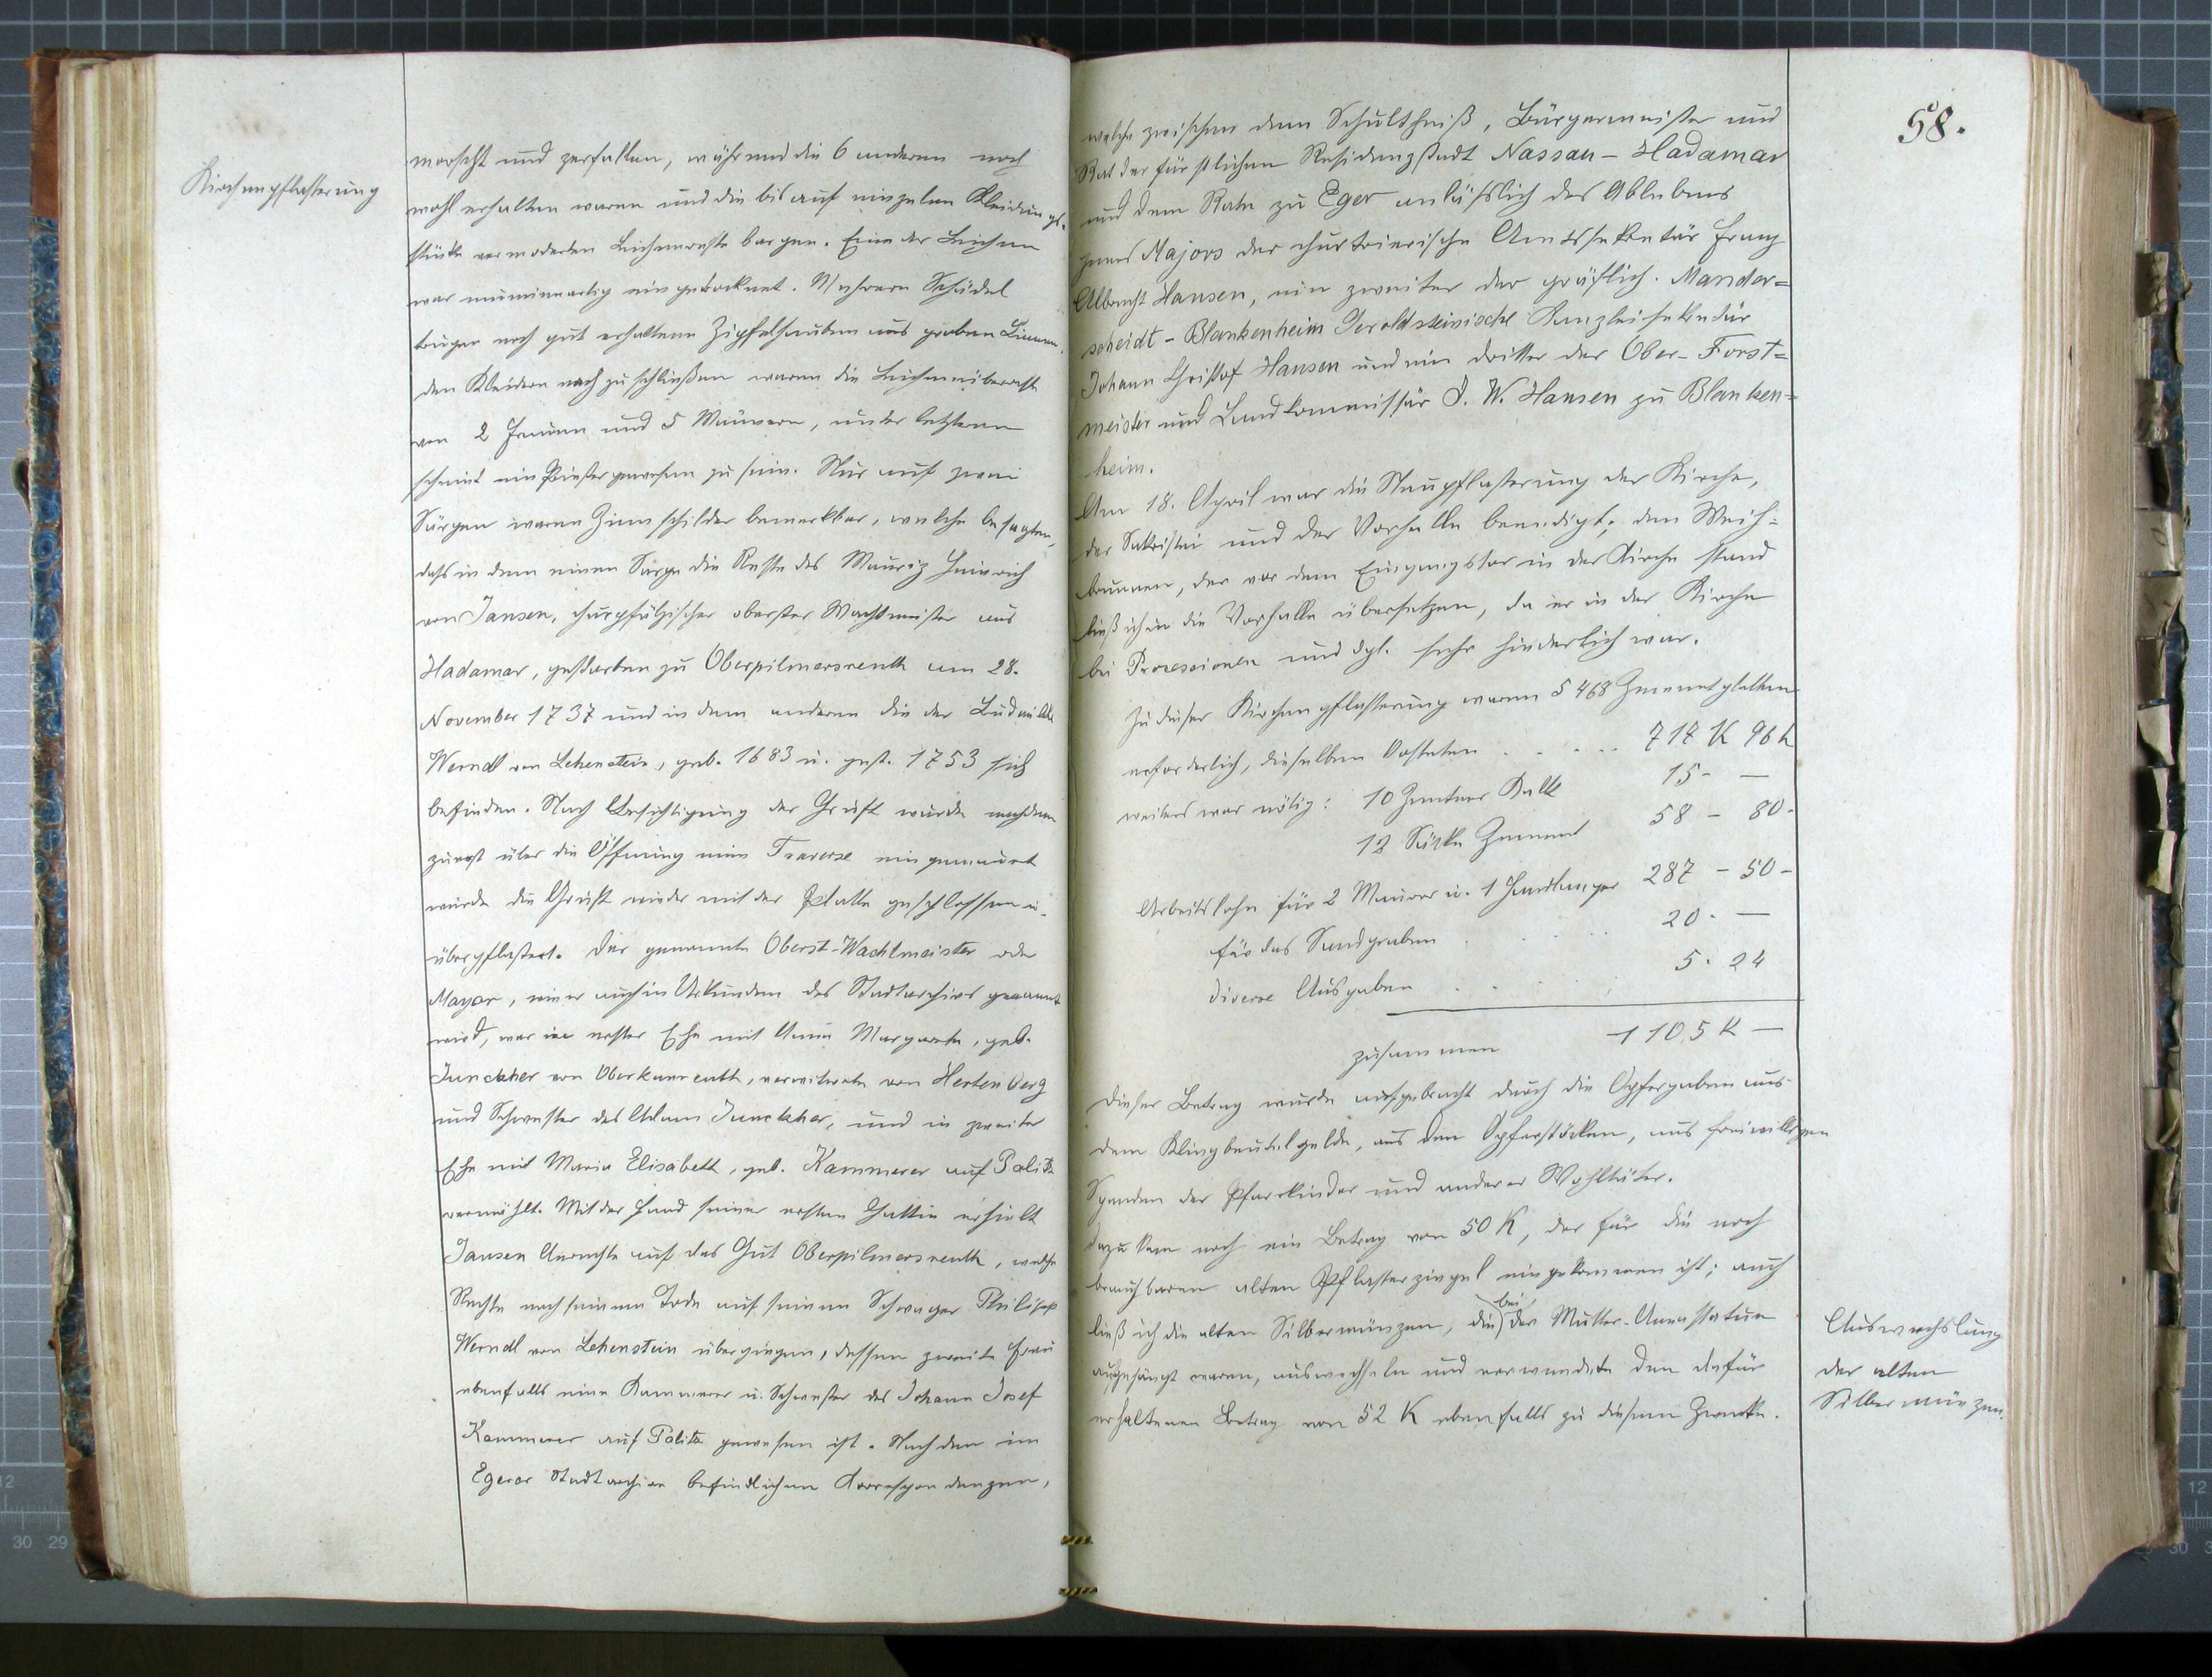 Kirchenpflasterung
morscht und zerfallen, während die 6 anderen noch
wohl erhalten waren und die bis auf einzelne Kleidungs-
stücke vermoderten Leichenreste bargen. Eine der Leichen
war mumienartig eingetrocknet. Mehrere Schädel
trugen noch gut erhaltene Zipfelhauben aus groben Linnen.
den Kleidern nach zu schließen waren die Leichenüberreste
von 2 Frauen und 5 Männern, unter letzteren
scheint ein Priester gewesen zu sein. Nur auf zwei
Särgen waren Zinnschilder bemerkbar, welche besagten,
daß in dem einen Sarge die Reste des Mauriz Heinrich
von Jansen, churpfälzischer oberster Wachtmeister aus
Hadamar, gestorben zu Oberpilmersreuth am 28.
November 1737 und in dem anderen die der Ludmilla
Werndl von Lehenstein, geb. 1683 u. gest. 1753 sich
befinden. Nach Besichtigung der Gruft wurde nachdem
zuerst über die Öffnung eine Traverse eingemauert
wurde die Gruft wieder mit der Platte geschlossen u.
überpflastert. Der genannte Oberst-Wachtmeister oder
Mayor, wie er auch in Urkunden des Stadtarchivs genannt
wird, war in erster Ehe mit Anna Margareta, geb.
Junckher von Oberkunreuth, verwitwete von Hertenberg
und Schwester des Adam Junckher, und in zweiter
Ehe mit Maria Elisabeth, geb. Kammerer auf Politz
vermählt. Mit der Hand seiner ersten Gattin erhielt
Jansen Anrechte auf das Gut Oberpilmersreuth, welche
Rechte nach seinem Tode auf seinen Schwager Philipp
Werndl von Lehenstein übergingen, dessen zweite Frau
ebenfalls eine Kammerer u. Schwester des Johann Josef
Kammerer auf Politz gewesen ist. Nach den im
Egerer Stadtarchive befindlichen Korrespondenzen,
58.
welche zwischen dem Schultheiß, Bürgermeister und
Rat der fürstlichen Residenzstadt Nassau-Hadamar
und dem Rate zu Eger anläßlich des Ablebens
jenes Majors der churtrierische Amtssekretär Franz
Albrecht Hansen, ein zweiter der gräflich. Mander=
scheidt-Blankenheim Geroldsteinische Kanzleisekretär
Johann Christof Hansen und ein dritter der Ober-Forst=
meister und Landkommissär J. W. Hansen zu Blanken=
heim.
Am 18. April war die Neupflasterung der Kirche,
der Sakristei und der Vorhalle beendigt; den Weih=
brunnen, der vor dem Eingangstor in der Kirche stand
ließ ich in die Vorhalle übersetzen, da er in der Kirche
bei Prozessionen und dgl. sehr hinderlich war.
Zu dieser Kirchenpflasterung waren 5468 Zementplatten
erforderlich, dieselben kosteten . . . . . 717 K 96 h
weiters war nötig: 10 Zentner Kalk 15 - —
12 Säcke Zement 58 - 80 -
Arbeitslohn für 2 Maurer u. 1 Handlanger 287 - 50 -
für das Sandgraben . . . . 20 . —
diverse Ausgaben . . . . 5 . 24
zusammen 1105 K —
Dieser Betrag wurde aufgebracht durch die Opfergaben aus
dem Klingbeutelgelde, aus den Opferstöcken, aus freiwilligen
Spenden der Pfarrkinder und anderer Wohltäter.
Dazu kam noch ein Betrag von 50 K, der für die noch
brauchbaren alten Pflasterziegel eingekommen ist; auch
ließ ich die alten Silbermünzen, die bei der Mutter-Annastatue
aufgehängt waren, auswechseln und verwendete den dafür
erhaltenen Betrag von 52 K ebenfalls zu diesem Zwecke.
Auswechslung
der alten
Silbermünzen.